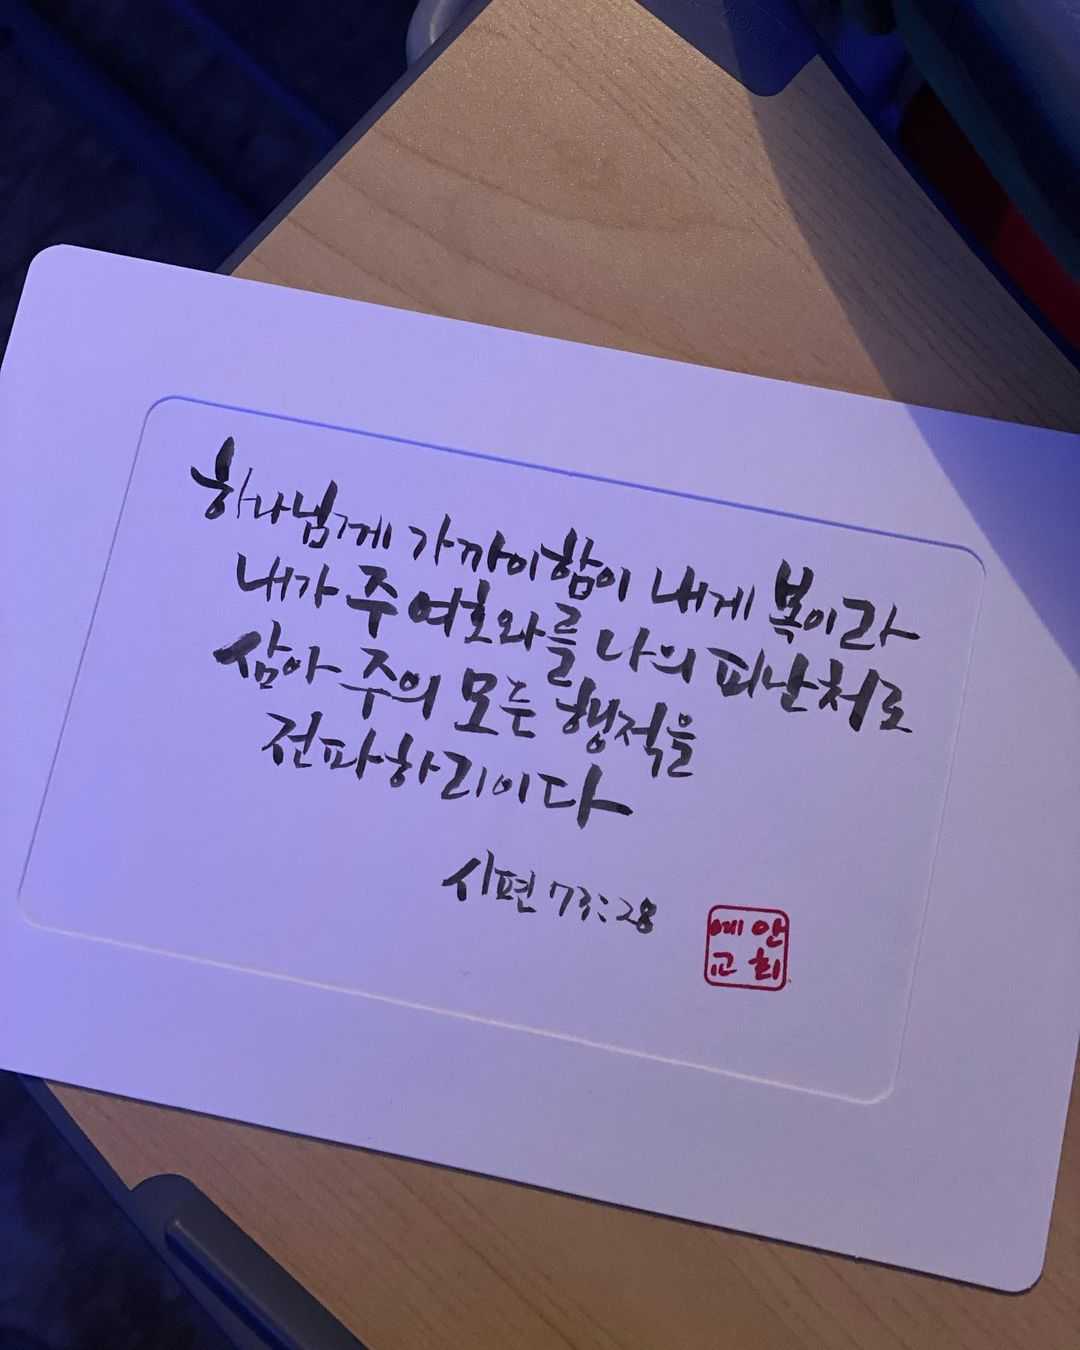 하나님께 가까이함이 내게 복이라
내가 주 여호와를 나의 피난처로
삼아 주의 모든 행적을
전파하리이다
시편 73:28
예안
교회